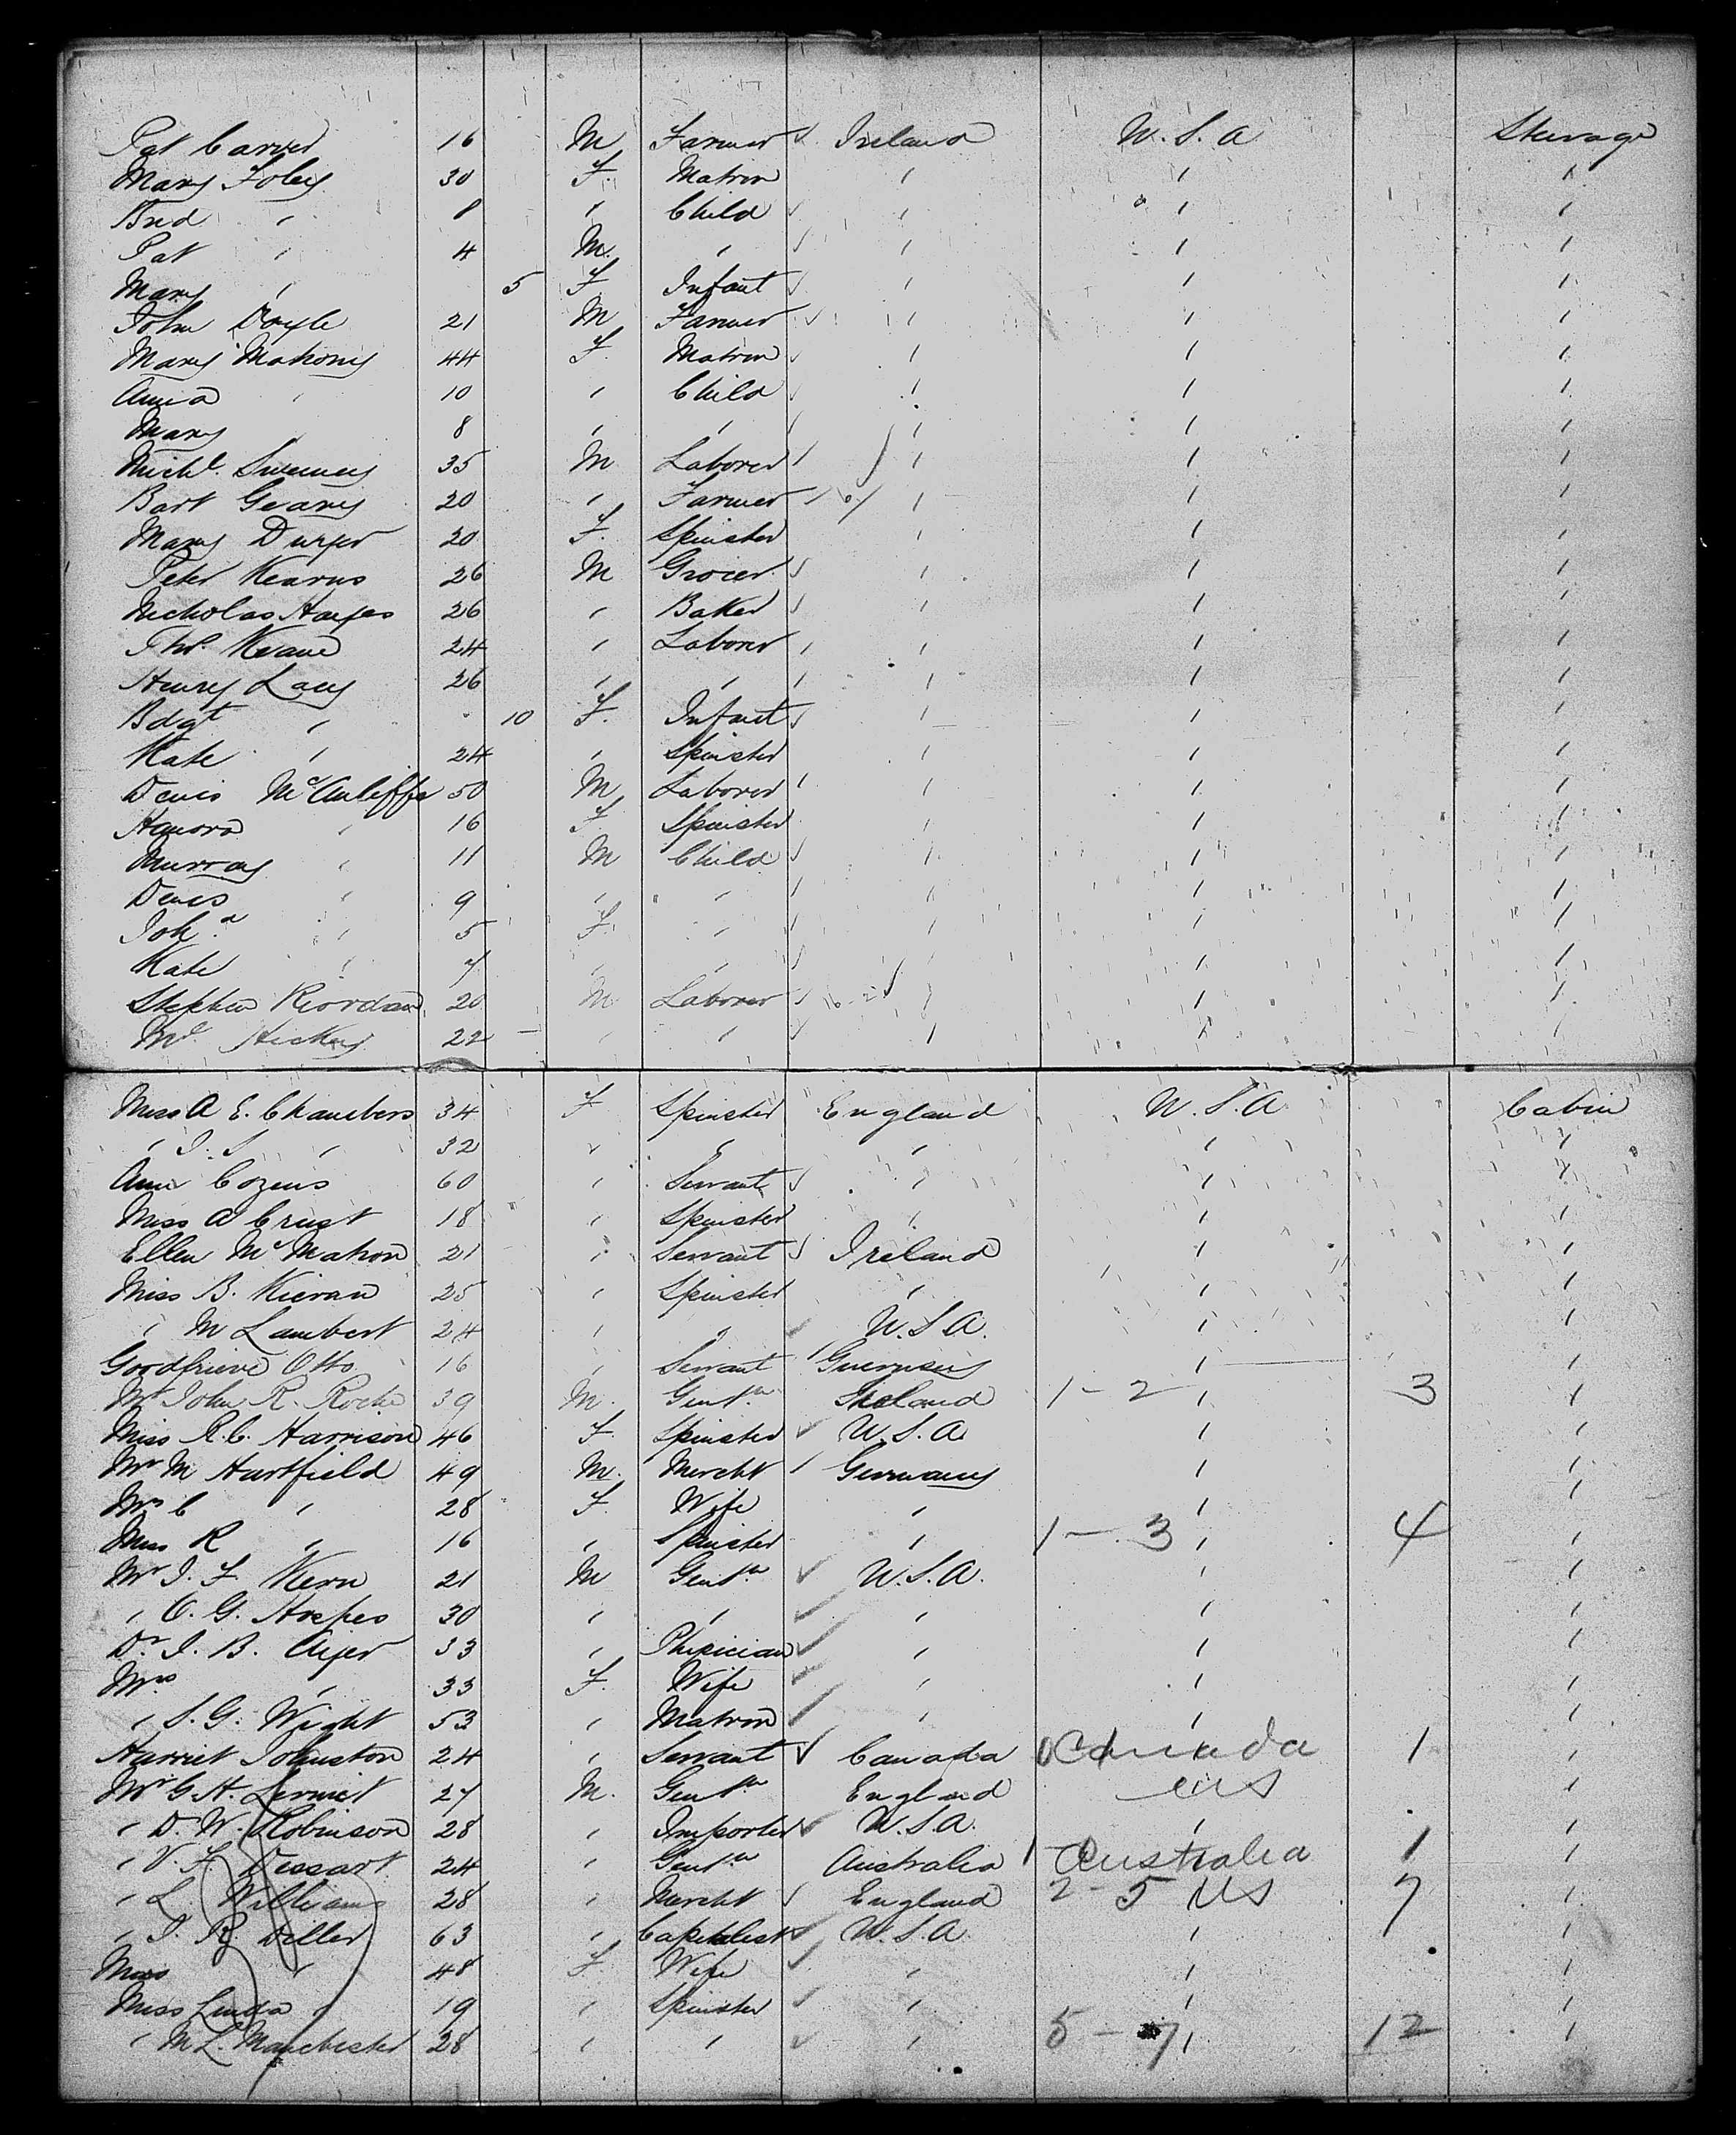 Pat Carver 16 M Farmer Ireland U.S.A Steerage
Mary Foley 30 F. Matron " " "
Brid " 8 " Child " " "
Pat " 4 M. " " " "
Mary " 5 F Infant " " "
John Doyle 21 M Farmer " " "
Mary Mahony 44 F. Matron " " "
" 10 " Child " " "
Mary 8 " " " " "
Michl. Sweeney 35 M Laborer " " "
Bart Geary 20 " Farmer " " "
Mary Dwyer 20 F. Spinster " " "
Peter Kearns 26 M Grocer " " "
Nicholas Hayes 26 " Baker " " "
Thos. Keane 24 " Laborer " " "
Henry Lacy 26 " " " " "
Bdgt " 10 F. Infant " " "
Kate " 24 " Spinster " " "
Denis McAuliffe 50 M Laborer " " "
Hanora " 16 F Spinster " " "
Murray " 11 M Child " " "
Denis " 9 " " " " "
Joh.a " 5 F. " " " "
Kate " 7 " " " " "
Stephen Riordan 20 M Laborer " " "
Ml. Hickey 22 " " " " "
Miss A E. Chambers 34 F Spinster England U.S.A Cabin
" J. S " 32 " " " " "
Ann Cozens 60 " Servant " " "
Miss A Crust 18 " Spinster " " "
Ellen McMahon 21 " Servant Ireland " "
Miss B. Kieran 25 " Spinster " " "
" M Lambert 24 " " U.S.A. " "
Otto 16 " Servant Guernsey " "
Mr John R. Roche 39 M. Gentn. Ireland 1-2 " 3 "
Miss R.C. Harrison 46 F. Spinster U.S.A. " "
Mr M Hartfield 49 M. Mercht Germany " "
Mrs C " 28 F. Wife " " "
Miss R " 16 " Spinster " 1-3 " 4 "
Mr J. F. Kern 21 M Gentn. U.S.A. " "
" O. G. Hoepes 30 " " " " "
Dr. J. B. Ayer 33 " Phisician " " "
Mrs " 33 F. Wife " " "
" S. G. Wight 53 " Matron " " "
Harriet Johnston 24 " Servant Canada Canada 1 "
Mr G. H. 27 M. Gentn England US "
" D. W. Robinson 28 " Importer U.S.A. " "
" V. F. Dessart 24 " Gentn Australia 1 Australia 1 "
" L. Williams 28 " Mercht England 2-5 US 7 "
" J. R. Diller 63 " Capitalist U.S.A. " "
Mrs " 48 F. Wife " " "
Miss Linda " 19 " Spinster " " "
" M L. Manchester 28 " " " 5-7 " 12 "